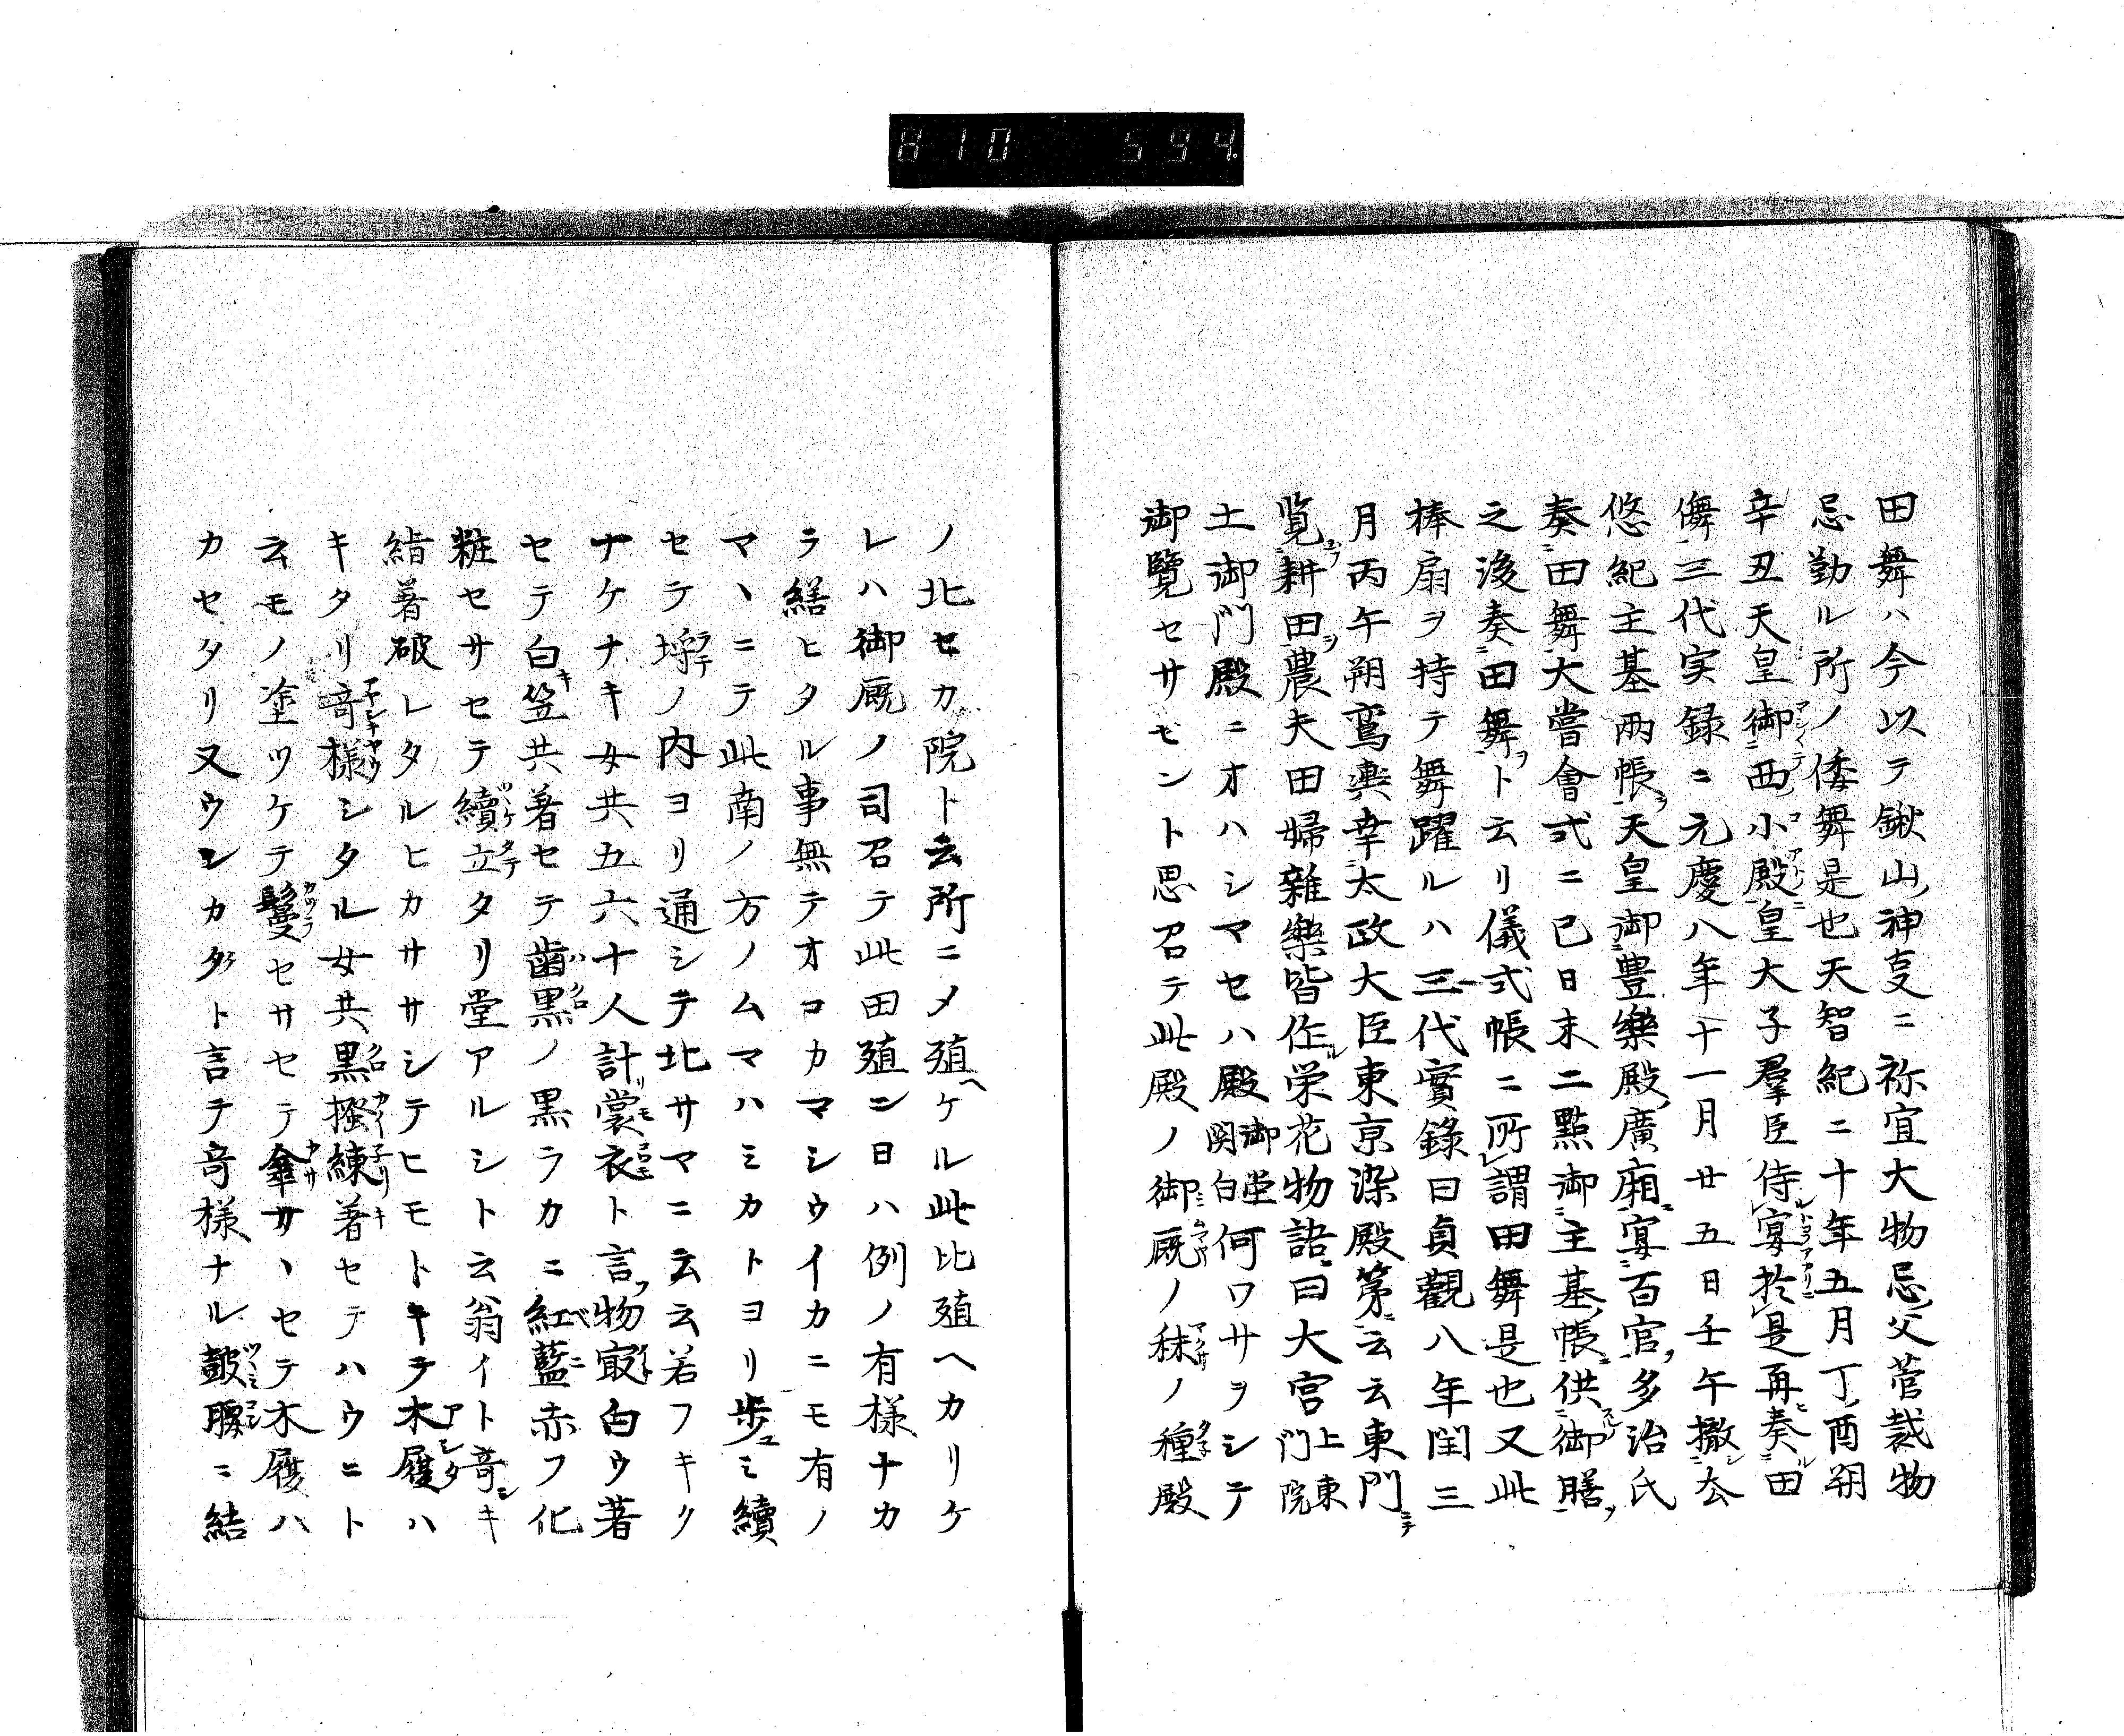 810 594.
田舞ハ今以テ鍬山神支ニ祢宜大物忌父菅裁物
忌勤ル所ノ倭舞是也天智紀ニ十年五月丁酉朔
辛丑天皇御西小殿皇大子羣臣侍宴於是再奏田
儛三代実録ニ元慶八年十一月廿五日壬午撤去
悠紀主基兩帳天皇御豊樂殿廣廂宴百官多治氏
奏田舞大嘗會式ニ巳日未二點御主基帳供御膳
之後奏田舞ト云リ儀式帳ニ所謂田舞是也又此
棒扇ヲ持テ舞躍ルハ三代實錄曰貞觀八年閏三
月丙午朔鸞輿幸太政大臣東京染殿第云云東門
覧耕田農夫田婦雜樂皆作栄花物語曰大宮上東門院
土御門殿ニオハシマセハ殿御堂関白何ワサヲシテ
御覽セサセント思召テ此殿ノ御厩ノ秣ノ種殿
ノ北セカ院ト云所ニメ殖ケル此比殖ヘカリケ
レハ御厩ノ司召テ此田殖ン日ハ例ノ有様ナカ
ラ繕ヒタル事無テオコカマシウイカニモ有ノ
マヽニテ此南ノ方ノムマハミカトヨリ歩ミ續
セテ埒ノ内ヨリ通シテ北サマニ云云若フキク
ナケナキ女共五六十人計裳衣ト言物寂白ウ著
セテ白笠共著セテ歯黒ノ黒ラカニ紅藍赤フ化
粧セサセテ續立タリ堂アルシト云翁イト竒キ
䋎著破レタルヒカササシテヒモトキテ木履ハ
キタリ竒様シタル女共黒搔練著セテハウニト
云モノ塗ツケテ鬘セサセテ傘サヽセテ木履ハ
カセタリ又ウシカタト言テ竒様ナル皷腰ニ結